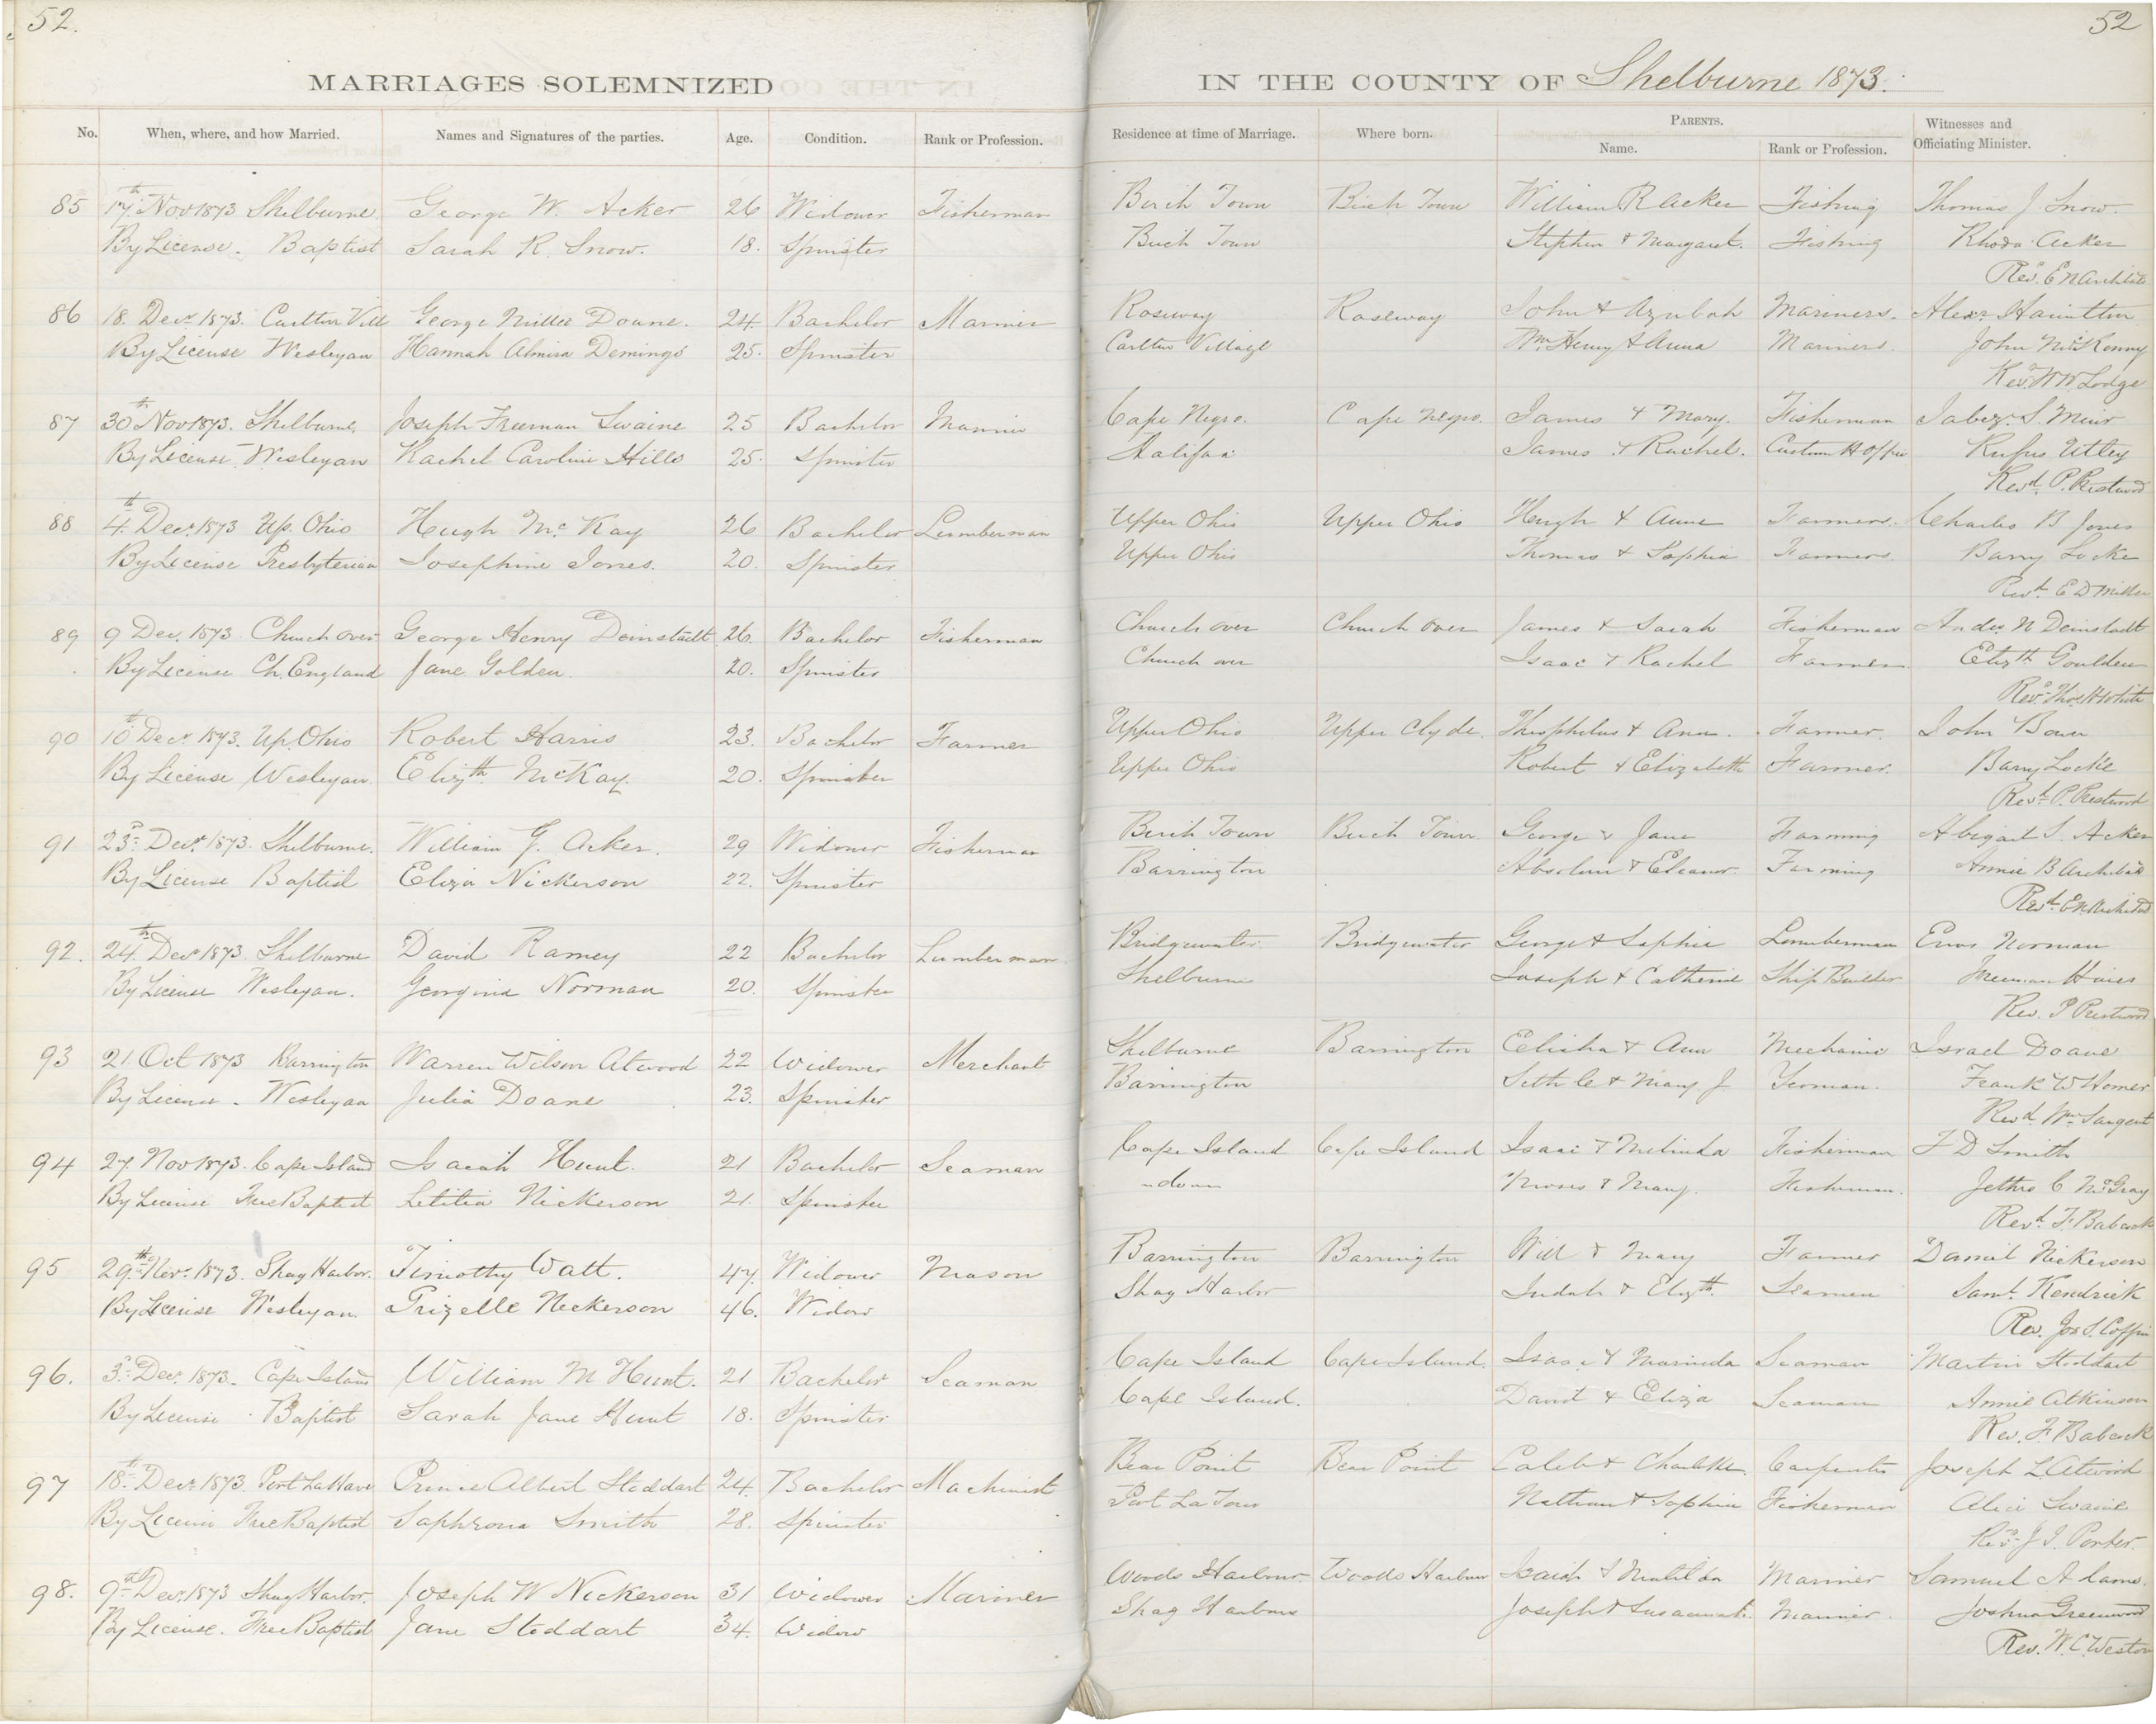 52.
52
MARRIAGES SOLEMNIZED IN THE COUNTY OF Shelburne 1873.
No. When, where, and how Married. Names and Signatures of the parties. Age. Condition. Rank or Profession. Residence at time of Marriage. Where born. PARENTS. Name. Rank or Profession. Witnesses and Officiating Minister.
85 17th Nov 1873 Shelburne George W. Acker 26 Widower Fisherman Birch Town Birch Town William R Acker Fishing Thomas J Snow.
By License. Baptist Sarah R. Snow. 18. Spinster Birch Town Stephen & Margaret. Fishing Rhoda Acker
Revd. E N Archibald
86 18 Decr 1873. Carlton Vill George Miller Doane. 24. Bachelor Mariner Roseway Roseway John & Azubah Mariners. Alexr Hamilton
By License Wesleyan Hannah Almira Demings 25. Spinster Carlton Village Wm Henry & Anna Mariners. John McKenny
Revd. W W Lodge
87 30th Nov 1873. Shelburne Joseph Freeman Swaine 25 Bachelor Mariner Cape Negro. Cape Negro. James & Mary. Fisherman Jabez. S. Muir
By License Wesleyan Rachel Caroline Hills 25. Spinster Halifax James & Rachel. Custom H Offr Rufus Utley
Revd. P. Prestwood
88 4th Decr 1873 Up. Ohio Hugh McKay 26 Bachelor Lumberman Upper Ohio Upper Ohio Hugh & Anne Farmers. Charles B Jones
By License Presbyterian Josephine Jones. 20. Spinster Upper Ohio Thomas & Sophia Farmers. Barry Locke
Revd. E D Miller
89 9 Dec. 1873. Church over George Henry Deinstadt 26. Bachelor Fisherman Church over Church Over James & Sarah Fisherman Andw. N Deinstadt
By License Ch. England Jane Golden. 20. Spinster Church over Isaac & Rachel Farmer Elizth Goulden
Revd. Thos H White
90 10th Decr. 1873. Up. Ohio Robert Harris 23. Bachelor Farmer Upper Ohio Upper Clyde. Theophelus & Ann. Farmer. John Bower
By License Wesleyan. Elizth. McKay. 20. Spinster Upper Ohio Robert & Elizabeth Farmer. Barry Locke
Revd. P. Prestwood
91 23d Decr. 1873. Shelburne. William G. Acker. 29 Widower Fisherman Birch Town Birch Town George & Jane Farming Abigail S. Acker
By License Baptist Eliza Nickerson 22. Spinster Barrington Absolum & Eleanor. Farming Annie B Archibald
Revd. E N Archibald
92. 24th Decr 1873 Shelburne David Ramey 22 Bachelor Lumberman Bridgewater Bridgewater George & Sophia Lumberman Enos Norman
By License Wesleyan. Georgina Norman 20. Spinster Shelburne Joseph & Catherine Ship Builder Freeman
Rev. P Prestwood
93 21. Oct 1873 Barrington Warren Wilson Atwood 22 Widower Merchant Shelburne Barrington Elisha & Ann Mechanic Israel Doane
By License - Wesleyan Julia Doane 23. Spinster Barrington Seth C & Mary J. Yeoman. Frank W Homer
Revd. Wm Sargent
94 27. Nov 1873. Cape Island Isaiah Hunt. 21 Bachelor Seaman Cape Island Cape Island Isaac & Melinda Fisherman F D Smith
By License Free Baptist Letitia Nickerson 21. Spinster - do - Moses & Mary. Fisherman. Jethro C McGray
Revd. F. Babcock
95 29th Novr. 1873. Shag Harbor. Timothy Watt. 47. Widower Mason Barrington Barrington Will & Mary Farmer Daniel Nickerson
By License Wesleyan. Prizelle Nickerson 46. Widow Shag Harbor Judah & Elizth. Seamen Saml. Kendrick
Rev. Jos S. Coffin
96. 3d Decr. 1873. Cape Island William M Hunt. 21 Bachelor Seaman Cape Island Cape Island. Isaac & Marinda Seaman Martin Stoddart
By License Baptist Sarah Jane Hunt 18. Spinster Cape Island. David & Eliza Seaman Annie Atkinson
Rev. F. Babcock
97 18th Decr. 1873. Port LaHave Prince Albert Stoddart 24. Bachelor Machinist Bear Point Bear Point Caleb & Charlotte. Carpenter Joseph L Atwood
By License Free Baptist Saphrona Smith 28. Spinster Port La Tour Nathan & Sophia Fisherman Alice Swaine
Revd. J. I. Porter.
98. 9th Decr 1873 Shag Harbor. Joseph W Nickerson 31 Widower Mariner Woods Harbour. Woods Harbour Isaiah & Matilda Mariner Samuel Adams.
By License. Free Baptist Jane Stoddart 34. Widow Shag Harbour Joseph & Susannah. Mariner. Joshua Greenwood
Rev. W. C. Weston